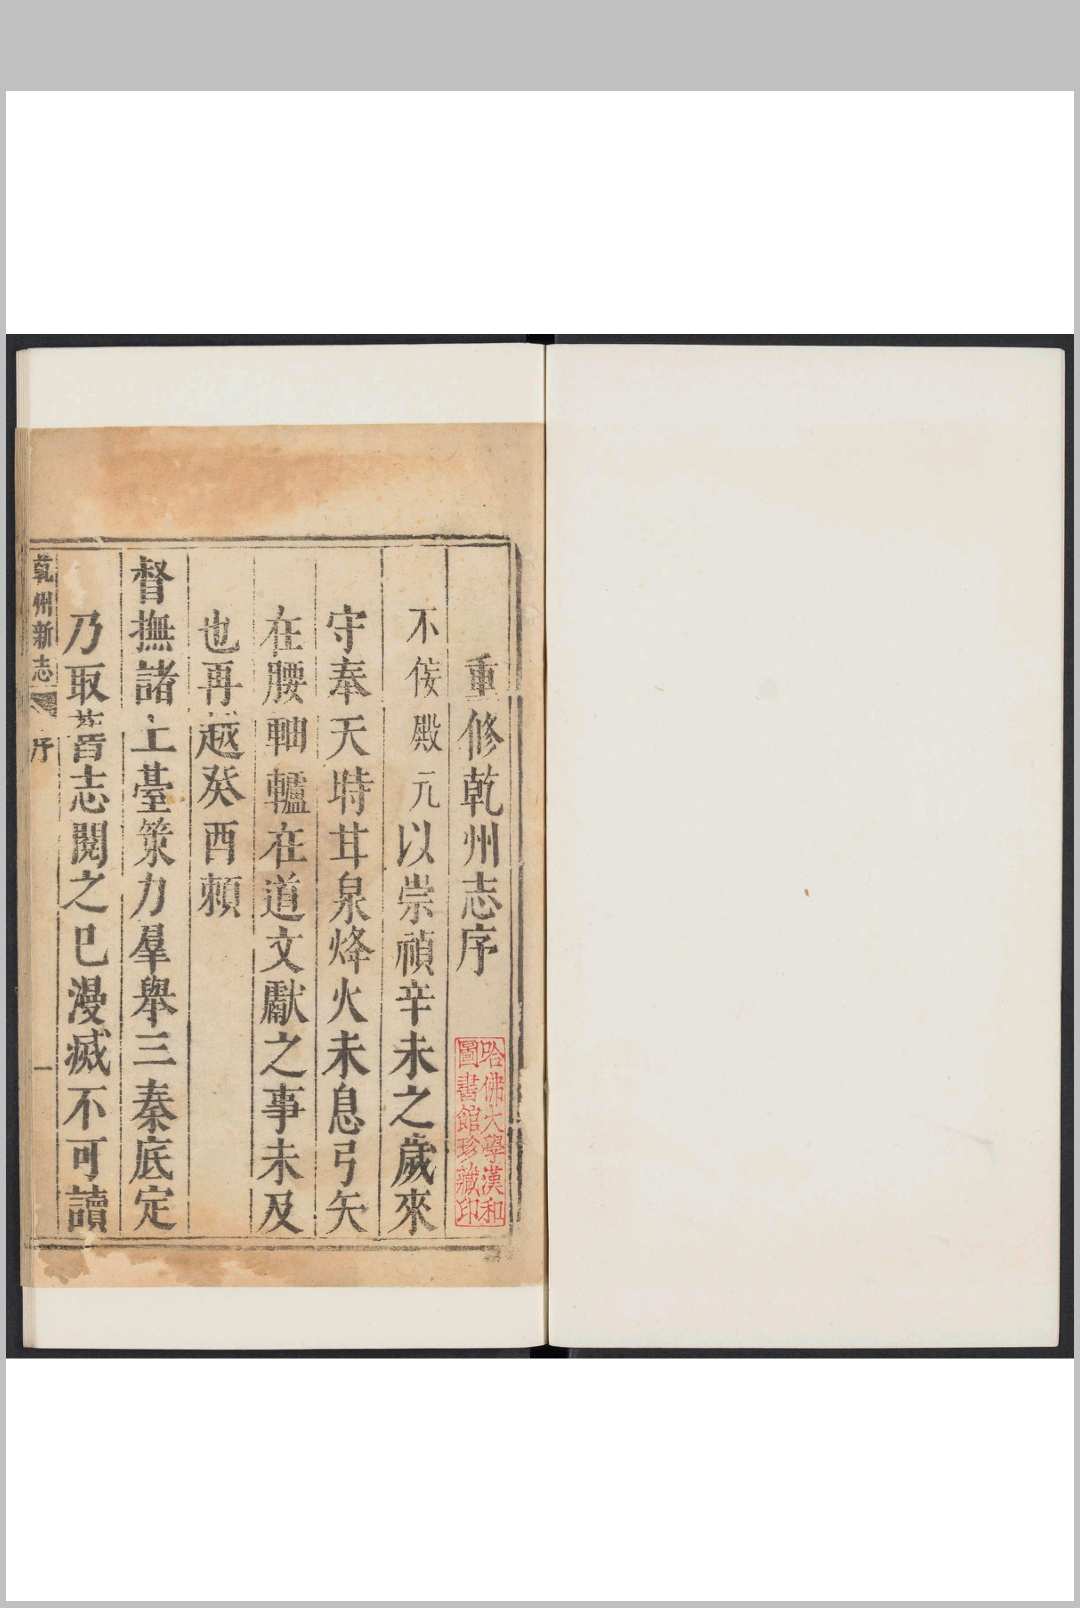 重修乾州志序
不佞殿元以崇禎辛未之歲來
守奉天時甘泉烽火未息弓矢
在腰軸轤在道文獻之事未及
也再越癸酉頼
督撫諸上臺策力羣舉三秦底定
乃取舊志閱之已漫滅不可讀
乾州新志
序
一
哈佛大學漢和
圖書館珍藏印